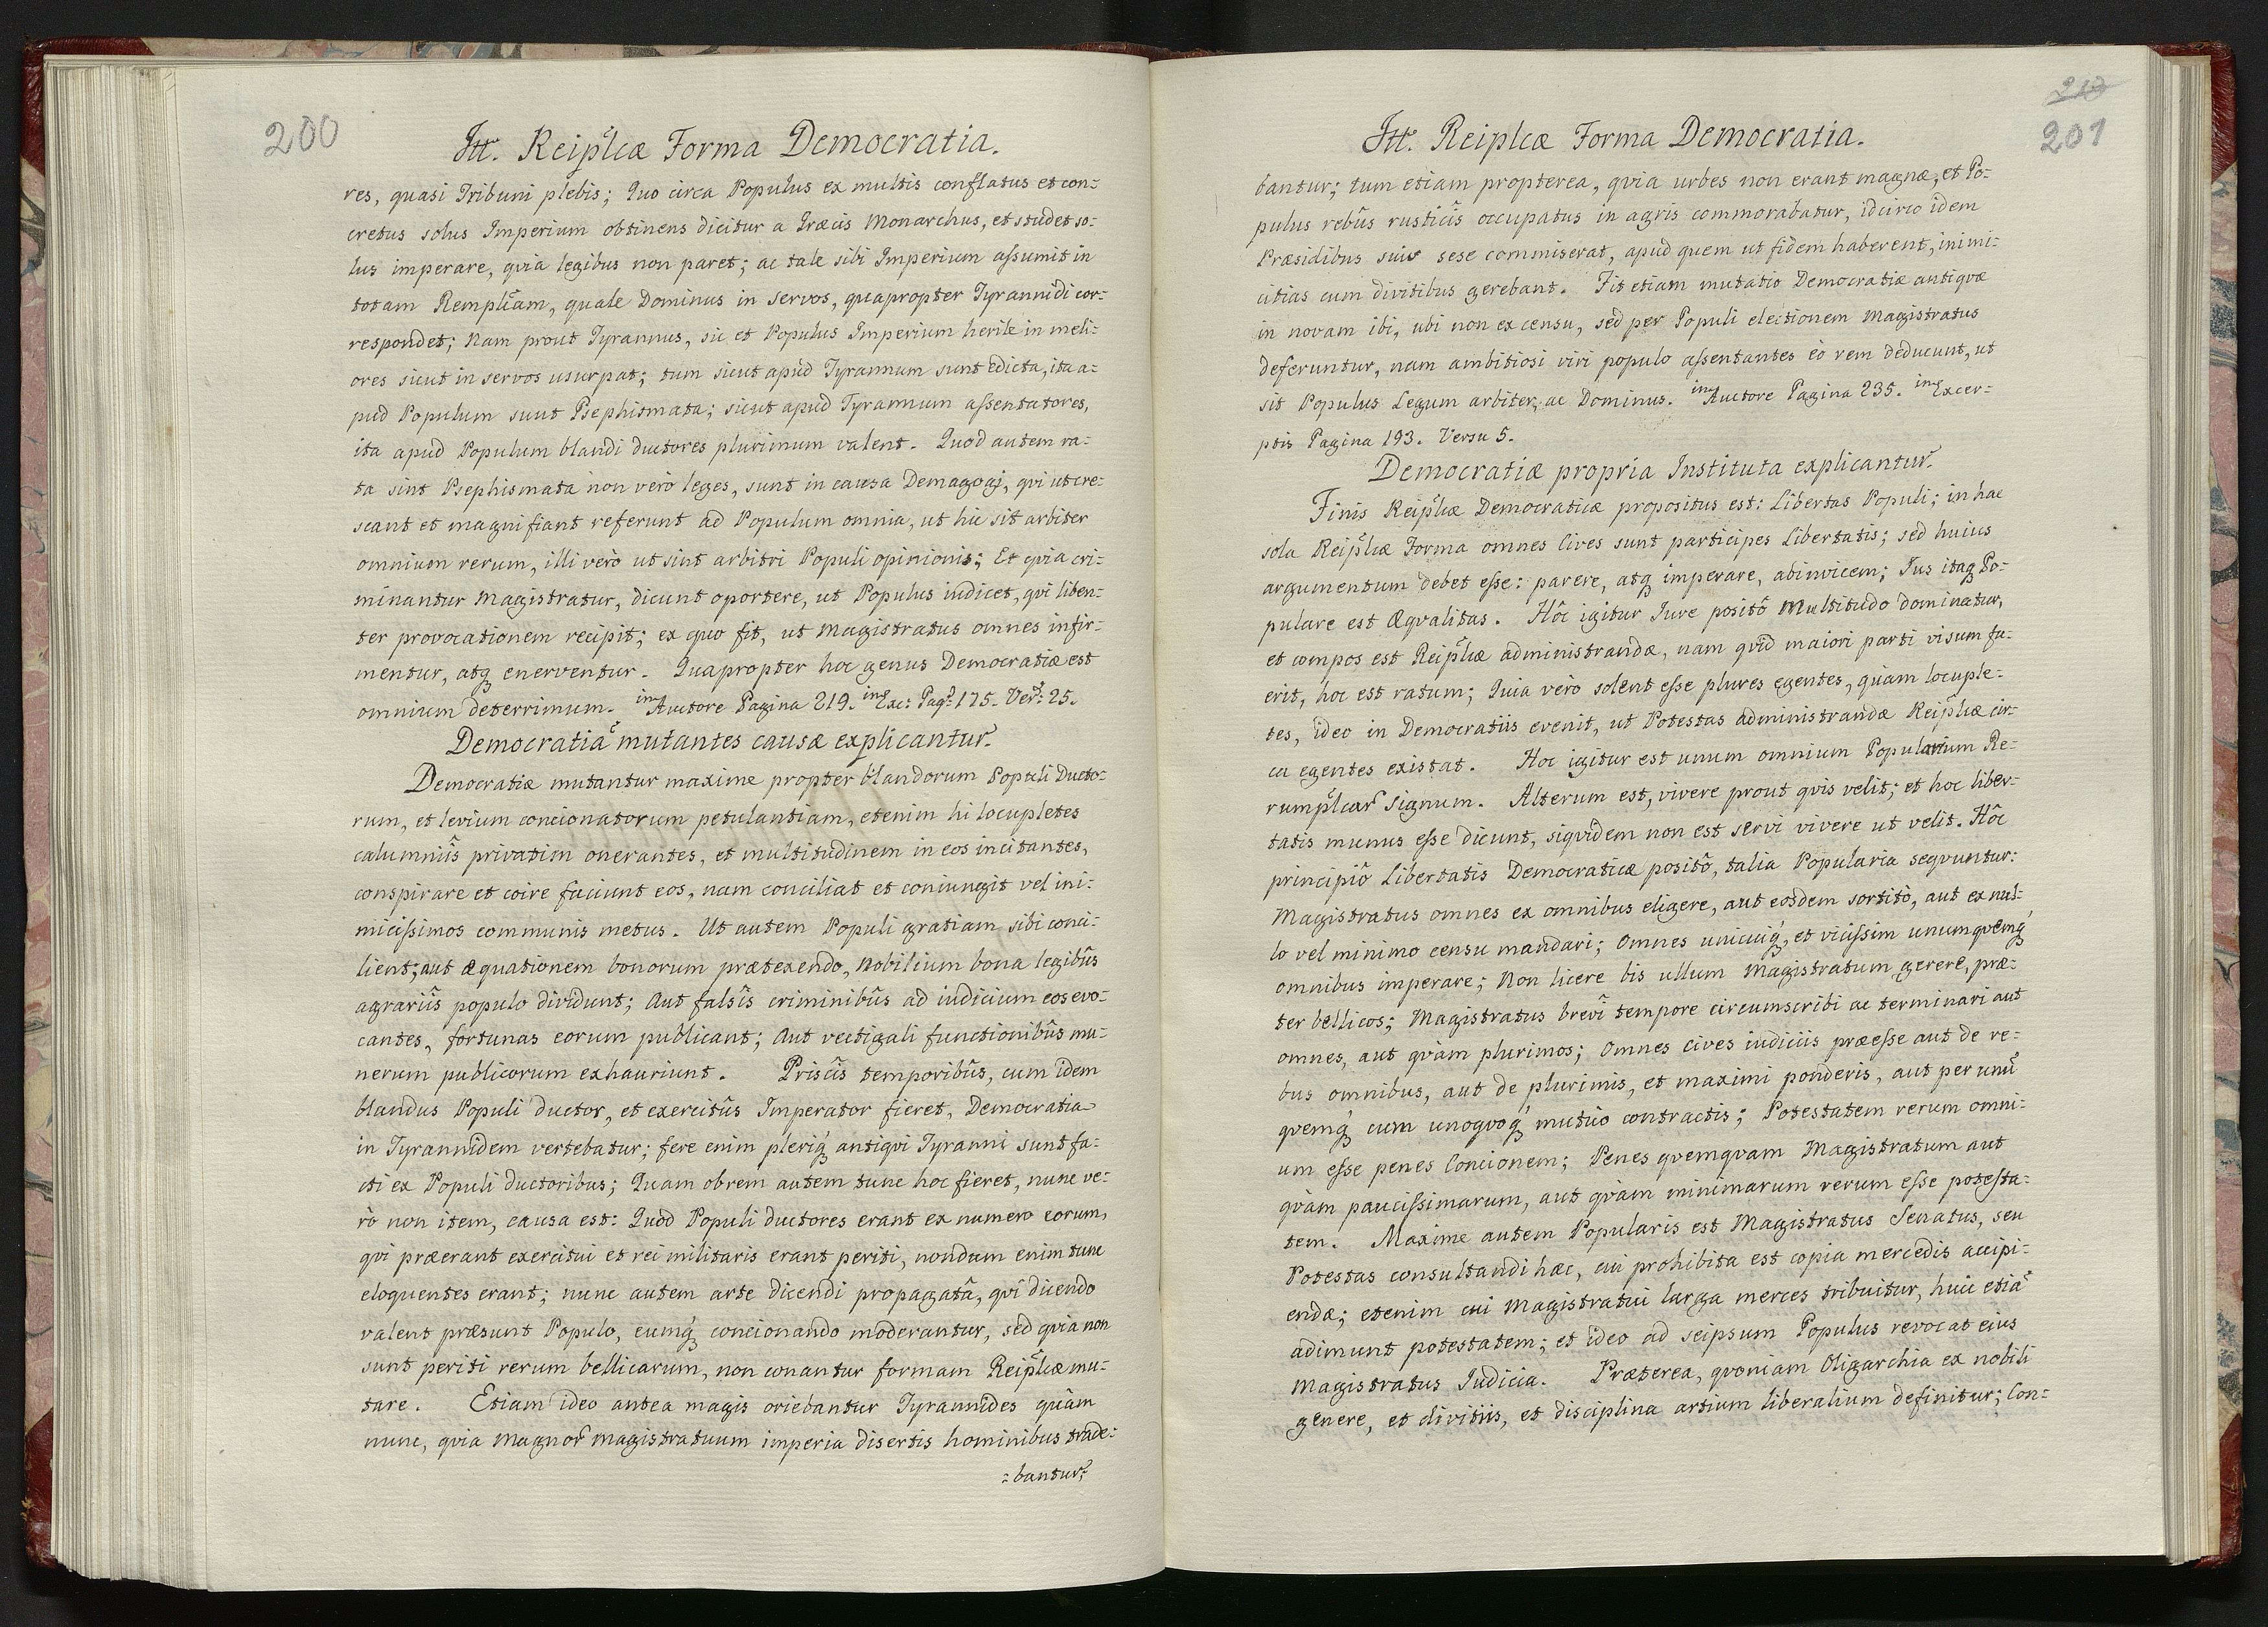 200
Itt. Reiplcæ Forma Democratia.
res, quasi Tribuni plebis; Quo circa Populus ex multis conflatus et con=
cretus solus Imperium obtinens dicitur a Græcis Monarchus, et studet so=
lus imperare, qvia legibus non paret; ac tale sibi Imperium assumit in
totam Remplcam, quale Dominus in servos, quapropter Tyrannidi cor=
respondet; Nam prout Tyrannus, sic et Populus Imperium herile in meli=
ores sicut in servos usurpat; tum sicut apud Tyrannum sunt edicta, ita a=
pud Populum sunt Psephismata; sicut apud Tyrannum assentatores,
ita apud Populum blandi ductores plurimum valent. Quod autem ra=
ta sint Psephismata non verò leges, sunt in causa Demagogi, qvi ut cre=
scant et magni fiant referunt ad Populum omnia, ut hic sit arbiter
omnium rerum, illi verò ut sint arbitri Populi opinionis; Et qvia cri=
minantur Magistratur, dicunt oportere, ut Populus iudicet, qvi liben=
ter provocationem recipit; ex quo fit, ut Magistratus omnes infir=
mentur, atq enerventur. Quapropter hoc genus Democratiæ est
omnium deterrimum. in Auctore Pagina 219. in Exc: Pag: 175. Ver: 25.
Democratiã mutantes causæ explicantur.
Democratiæ mutantur maxime propter blandorum Populi Ducto=
rum, et levium concionatorum petulantiam, etenim hi locupletes
calumniîs privatim onerantes, et multitudinem in eos incitantes,
conspirare et coire faciunt eos, nam conciliat et coniungit vel ini=
micissimos communis metus. Ut autem Populi gratiam sibi conci=
lient; aut æquationem bonorum prætexendo, Nobilium bona legibûs
agrariîs populo dividunt; Aut falsîs criminibûs ad iudicium eos evo=
cantes, fortunas eorum publicant; Aut vectigali functionibûs mu=
nerum publicorum exhauriunt. Priscîs temporibûs, cum idem
blandus Populi ductor, et exercitûs Imperator fieret, Democratia
in Tyrannidem vertebatur; fere enim pleriq́ antiqvi Tyranni sunt fa=
cti ex Populi ductoribus; Quam obrem autem tunc hoc fieret, nunc ve=
rò non item, causa est: Quod Populi ductores erant ex numero eorum,
qvi præerant exercitui et rei militaris erant periti, nondum enim tunc
eloquentes erant; nunc autem arte dicendi propagatâ, qvi dicendo
valent præsunt Populo, eumq́ concionando moderantur, sed qvia non
sunt periti rerum bellicarum, non conantur formam Reiplcæ mu=
tare. Etiam ideo antea magis oriebantur Tyrannides quàm
nunc, qvia Magnor Magistratuum imperia disertis hominibus trade=
=bantur;
210
201
Itt. Reiplcæ Forma Democratia.
bantur; tum etiam propterea, qvia urbes non erant magnæ, et Po=
pulus rebûs rusticîs occupatus in agris commorabatur, idcirco idem
Præsidibus suis sese commiserat, apud quem ut fidem haberent, inimi=
citias cum divitibus gerebant. Fit etiam mutatio Democratiæ antiqvæ
in novam ibi, ubi non ex censu, sed per Populi electionem Magistratus
deferuntur, nam ambitiosi viri populo assentantes eò rem deducunt, ut
sit Populus Legum arbiter, ac Dominus. in Auctore Pagina 235. in Excer=
ptis Pagina 193. Versu 5.
Democratiæ propria Instituta explicantur.
Finis Reiplcæ Democraticæ propositus est: Libertas Populi; in hac
sola Reiplcæ Forma omnes Cives sunt participes Libertatis; sed huius
argumentum debet esse: parere, atq imperare, abinvicem; Ius itaq Po=
pulare est Æqvalitas. Hôc igitur Iure positô Multitudo dominatur,
et compos est Reiplcæ administrandæ, nam qvid maiori parti visum fu=
erit, hoc est ratum; Quia verò solent esse plures egentes, quàm locuple=
tes, ideo in Democratiis evenit, ut Potestas administrandæ Reiplcæ cir=
ca egentes existat. Hoc igitur est unum omnium Popularium Re=
rumplcar signum. Alterum est, vivere prout qvis velit; et hoc liber=
tatis munus esse dicunt, siqvidem non est servi vivere ut velit. Hôc
principiô Libertatis Democraticæ positô, talia Popularia seqvuntur:
Magistratus omnes ex omnibus eligere, aut eosdem sortitò, aut ex nul=
lo vel minimo censu mandari; Omnes unicuiq́, et vicissim unumqvemq́
omnibus imperare; Non licere bis ullum Magistratum gerere, præ=
ter bellicos; Magistratus brevi tempore circumscribi ac terminari aut
omnes, aut qvàm plurimos; Omnes cives iudiciis præesse aut de re=
bus omnibus, aut de plurimis, et maximi ponderis, aut per unũ
qvemq́ cum unoqvoq́ mutùo contractis; Potestatem rerum omni=
um esse penes Concionem; Penes qvemqvam Magistratum aut
qvàm paucissimarum, aut qvàm minimarum rerum esse potesta=
tem. Maxime autem Popularis est Magistratus Senatus, seu
Potestas consultandi hæc, cui prohibita est copia mercedis accipi=
endæ; etenim cui Magistratui larga merces tribuitur, huic etiã
adimunt potestatem; et ideo ad seipsum Populus revocat eius
Magistratus Iudicia. Præterea, qvoniam Oligarchia ex nobili
genere, et divitiis, et disciplina artium liberalium definitur; Con=